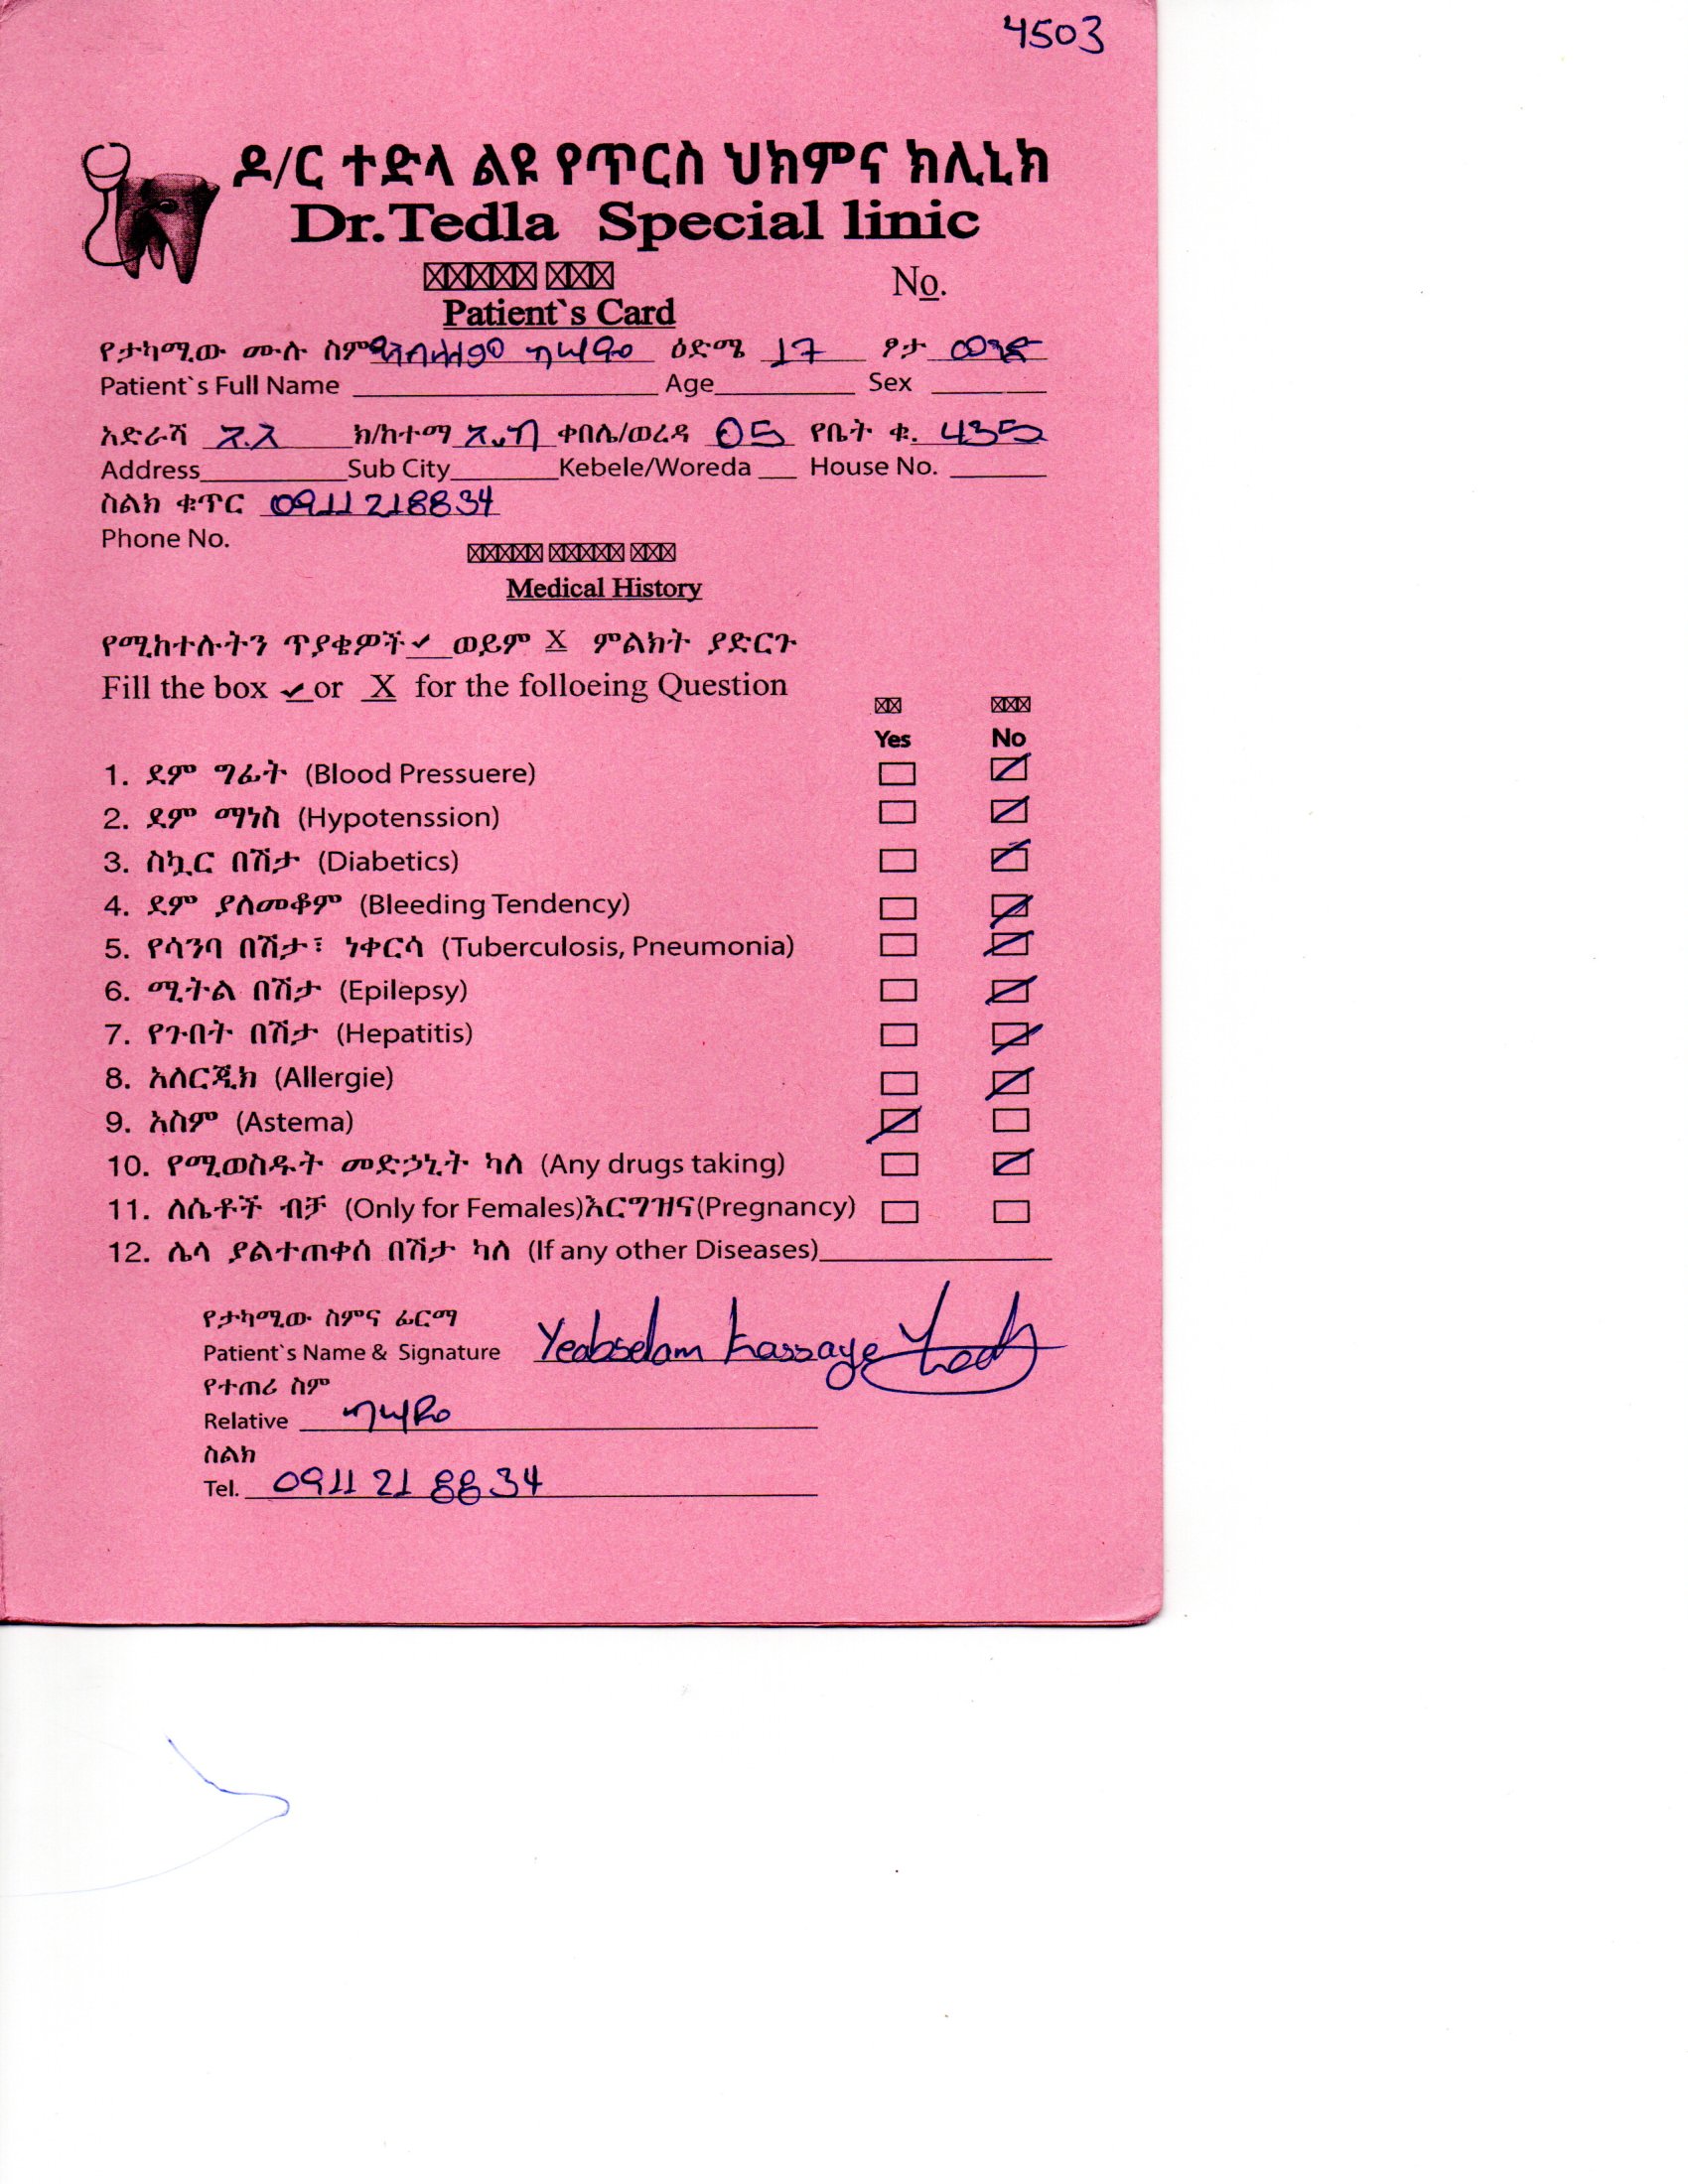 4503
ዶ/ር ተድላ ልዩ የጥርስ ህክምና ክሊኒክ
Dr.Tedla Special linic
No.
Patient`s Card
የታካሚው ሙሉ ስም ዕድሜ 17 ፆታ ወንድ
Patient`s Full Name Age Sex
አድራሻ አ.አ ክ/ከተማ ቀበሌ/ወረዳ 05 የቤት ቁ. 435
Address Sub City Kebele/Woreda House No.
ስልክ ቁጥር 0911218834
Phone No.
Medical History
የሚከተሉትን ጥያቄዎች ✓ ወይም X ምልክት ያድርጉ
Fill the box ✓ or X for the folloeing Question
Yes No
1. ደም ግፊት (Blood Pressuere)
2. ደም ማነስ (Hypotenssion)
3. ስኳር በሽታ (Diabetics)
4. ደም ያለመቆም (Bleeding Tendency)
5. የሳንባ በሽታ፣ ነቀርሳ (Tuberculosis, Pneumonia)
6. ሚትል በሽታ (Epilepsy)
7. የጉበት በሽታ (Hepatitis)
8. አለርጂክ (Allergie)
9. አስም (Astema)
10. የሚወስዱት መድኃኒት ካለ (Any drugs taking)
11. ለሴቶች ብቻ (Only for Females)እርግዝና(Pregnancy)
12. ሌላ ያልተጠቀሰ በሽታ ካለ (If any other Diseases)
የታካሚው ስምና ፊርማ
Patient`s Name & Signature Yeabselam Kassaye
የተጠሪ ስም
Relative ካሳዬ
ስልክ
Tel. 0911 21 88 34